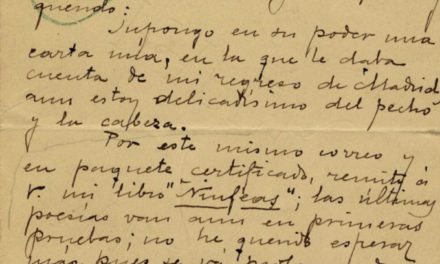 querido:
Supongo en su poder una
carta mía, en la que le daba
cuenta de mi regreso de Madrid
aun estoy delicadísimo del pecho
y la cabeza.
Por este mismo correo y
en paquete certificado, remito á
V. mi libro "Ninfeas"; las últimas
poesías van aun en primeras
pruebas; no he querido esperar
más pues se va